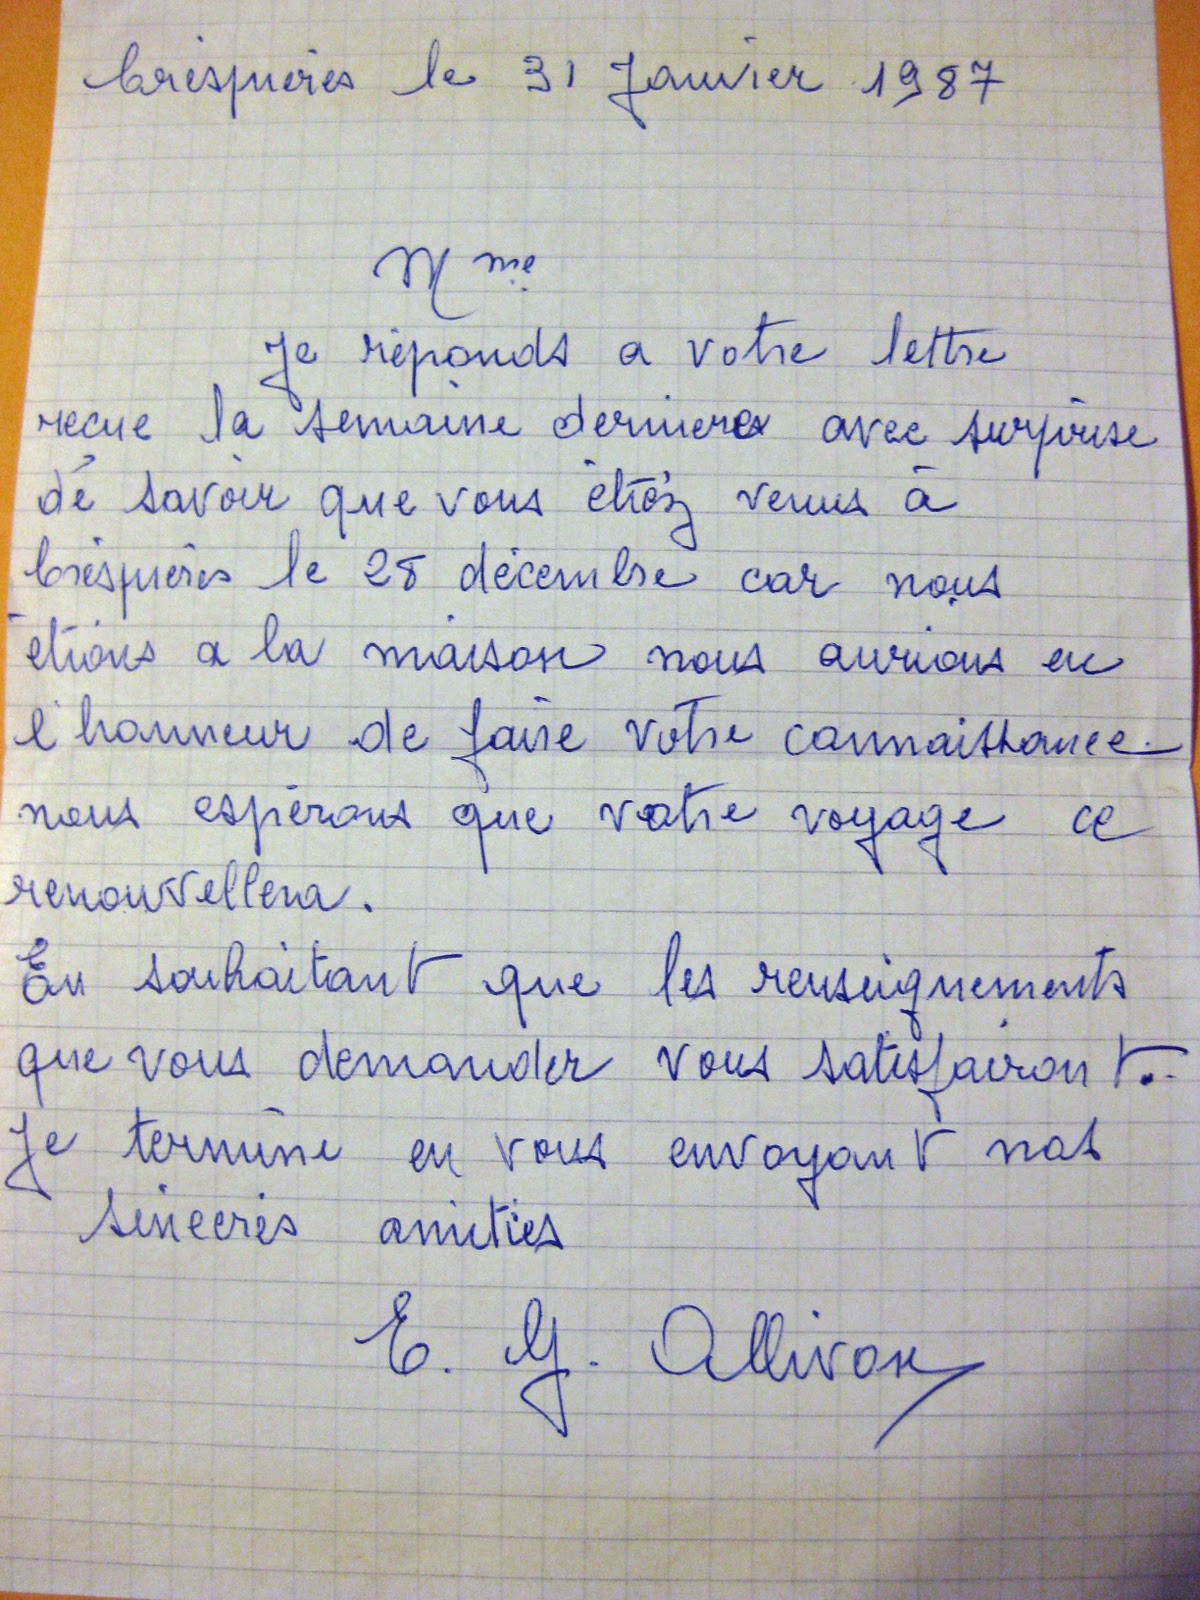 Crespières le 31 Janvier 1987
Mme
Je réponds a votre lettre
recue la semaine derniere avec surprise
de savoir que vous étiez venus à
Crespières le 28 décembre car nous
etions a la maison nous aurions eu
l'honneur de faire votre connaissance.
nous espérons que votre voyage ce
renouvellera.
En souhaitant que les renseignements
que vous demander vous satisfairont.
Je termine en vous envoyant nos
sincerès amitiés
E. G. Allivon